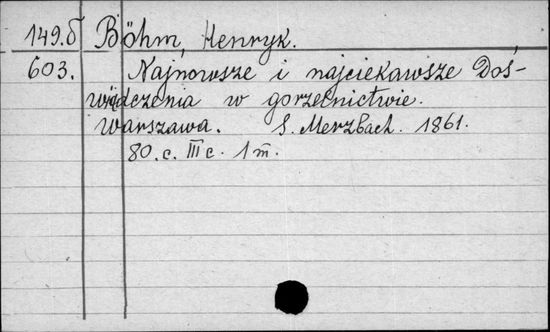 149.b Böhm, Henryk.
603. Najnowsze i najciekawsze Doś-
wiadczenia w gorzelnictwie.
Warszawa. S. Merzbach. 1861.
80. c. III c. 1 m.